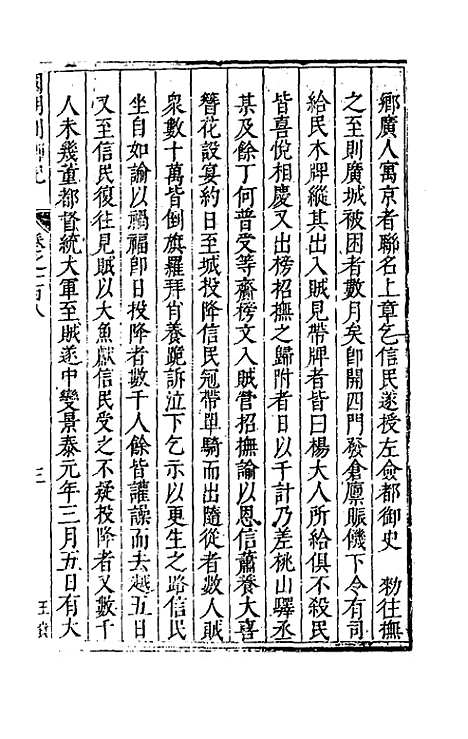 鄉廣人寓京者聯名上章乞信民遂授左僉都御史　勑往撫
之至則廣城被困者數月矣卽開四門發倉廪賑饑下令有司
給民木牌縱其出入賊見帶牌者皆曰楊大人所給俱不殺民
皆喜悅相慶又出榜招撫之歸附者日以千計乃差桃山驛丞
某及餘丁何普受等齎榜文入賊营招撫諭以恩信蕭養大喜
簪花設宴約日至城投降信民冠帶單騎而出隨從者數人賊
衆數十萬皆倒旗羅拜肖養跪訴泣下乞示以更生之路信民
坐自如諭以禍福卽日投降者數千人餘皆讙譟而去越五日
又至信民復往見賊以大魚獻信民受之不疑投降者又數千
人未幾董都督統大軍至賊遂中變景泰元年三月五日有大
卷之一百八
三